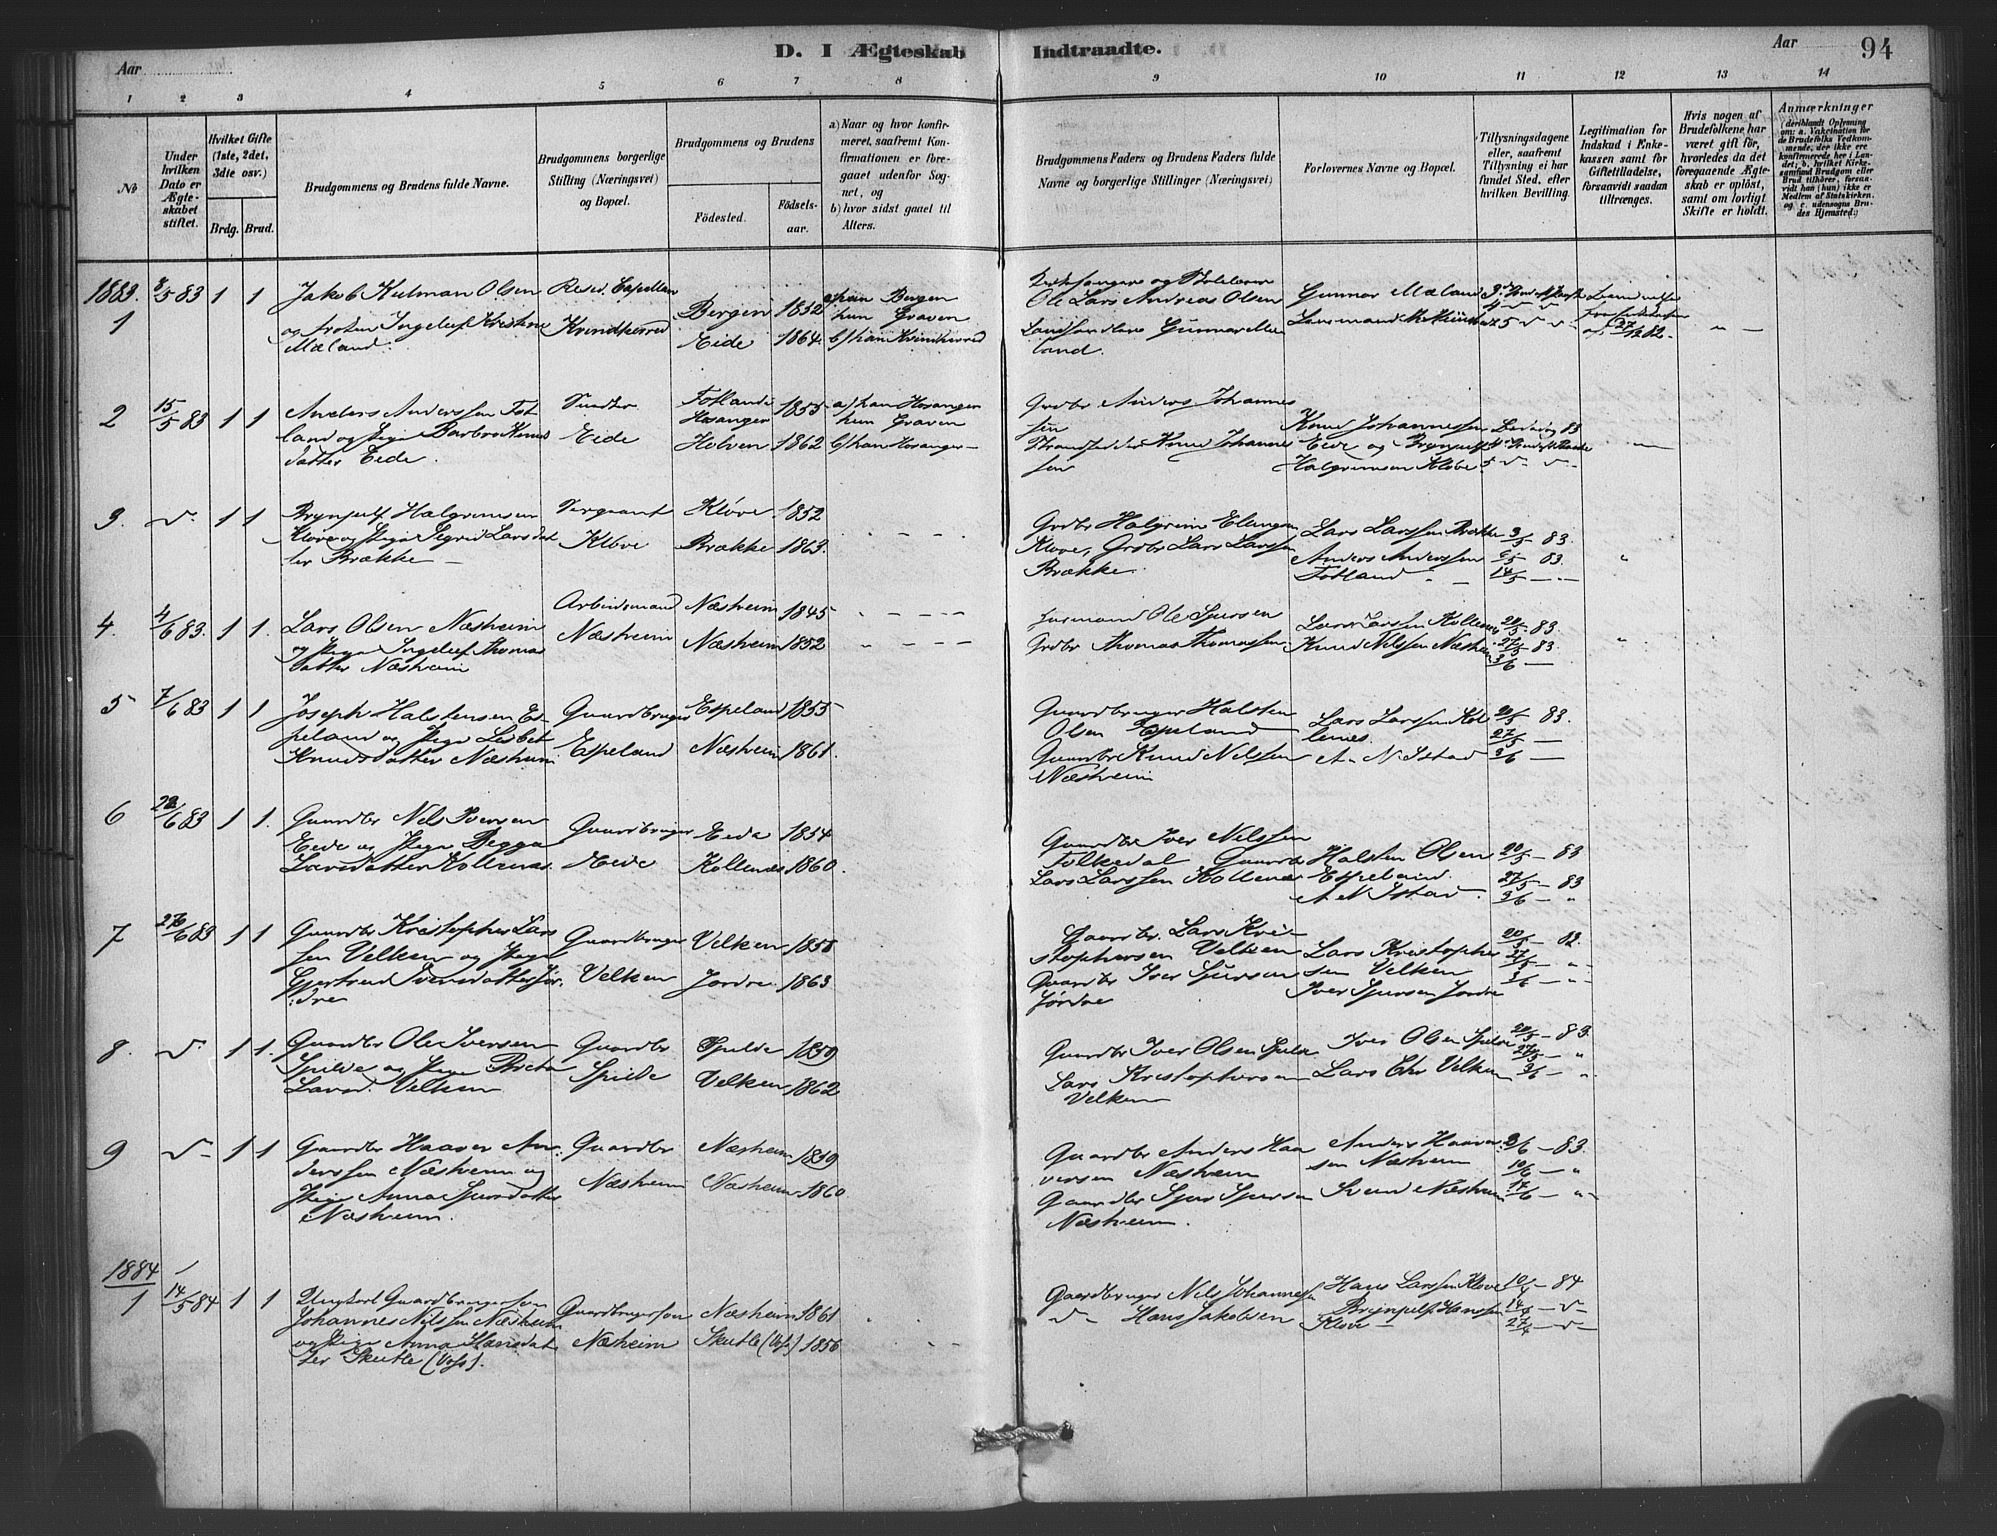 D. I Ægteskab Indtraadte.
Aar
Aar
94
1 2 3 4 5 6 7 8 9 10 11 12 13 14
No
Under hvilken Dato er Ægteskabet stiftet.
Hvilket Gifte (1ste, 2det, 3dte osv.)
Brdg. Brud.
Brudgommens og Brudens fulde Navne.
Brudgommens borgerlige Stilling (Næringsvei) og Bopæl.
Brudgommens og Brudens
Födested.
Födselsaar.
a) Naar og hvor konfirmeret, saafremt Konfirmationen er foregaaet udenfor Sognet, og
b) hvor sidst gaaet til Alters.
Brudgommens Faders og Brudens Faders fulde Navne og borgerlige Stillinger (Næringsvei)
Forlovernes Navne og Bopæl.
Tillysningsdagene eller, saafremt Tillysning ei har fundet Sted, efter hvilken Bevilling.
Legitimation for Indskud i Enkekassen samt for Giftetilladelse, forsaavidt saadan tiltrænges.
Hvis nogen af Brudefolkene har været gift för, hvorledes da det foregaaende Ægteskab er oplöst, samt om lovligt Skifte er holdt.
Anmærkninger
1883.
1 8/5 83 1 1
Jakob Kulman Olsen
og Frøken Ingeleif Kristine
Mæland.
Resid. Capellan
Kvindherred
Bergen 1852
Eide 1864.
a) han Bergen
hun Graven
b) han Kvindherred
Kirkesanger og Skolelærer
Ole Lars Andreas Olsen
Landhandler Gunnar Mæland.
Gunnar Mæland
Lensmand
2 15/5 83 1 1
Anders Anderssen Fotland
og Pige Barbro Knudsdatter
Eide.
Eide
Fotland
Hosanger 1855
Helven 1862
a) han Hosanger
hun Graven
b) han Hosanger
Grdbr Anders Johannessen
Knud Johannessen
Knud Johannessen
Eide og Brynjulf
Halgrimsen Kløve.
3. 1 1
Brynjulf Halgrimsen
Kløve og Pige Sigrid Larsdatter
Brække
Sergeant
Kløve
Kløve. 1852
Brække 1863.
Grdbr Halgrim Ellingsen
Kløve, Grdbr Lars Larssen
Brække.
Lars Larssen Brække
Anders Anderssen
Fotland
3/5 83.
6/5 83.
14/5
4. 4/6 83. 1 1.
Lars Olsen Næsheim
og Pige Ingeleif Thomasdatter
Næsheim
Arbeidsmand
Næsheim
Næsheim 1845
Næsheim 1852
Husmand Ole Sjursen
Grdbr Thomas Thomassen
Lars Larssen Kollenæs
Knud Nilssen Næsheim
20/5 83.
27/5 83
3/6
5 7/6 83 1 1
Joseph Halstensen Espeland
og Pige Lisbet
Knudsdatter Næsheim
Gaardbruger
Espeland
Espeland 1855
Næsheim 1861.
Gaardbruger Halsten
Olsen Espeland
Gaardbr Knud Nilssen
Næsheim
Lars Larssen Kollenes.
A. N. Istad
20/5 83.
27/5
3/6
6 22/6 83 1 1.
Gaardbr Nils Iversen
Eide og Pige Begga
Larsdatter Kollenæs.
Gaardbruger
Eide
Eide 1854
Kollenæs 1860.
Gaardbr Iver Nilssen
Folkedal Gaardbr
Lars Larssen Kollenæs
Halsten Olsen
Espeland.
A N Istad.
20/5 83
27/5 83
3/6 "
7 26/6 83 1 1
Gaardbr Kristopher Larssen
Velken og Pige
Gjertrud Iversdatter Jordre
Gaardbruger
Velken
Velken 1858
Jordre. 1863
Gaardbr. Lars Kristophersen
Velken
Gaardbr Iver Sjursen
Jordre
Lars Kristophersen
Velken
Iver Sjursen Jordre
20/5 83.
27/5 "
3/6 "
8. 1 1.
Gaardbr Ole Iversen
Spilde og Pige Brita
Larsd. Velken
Gaardbr
Spilde
Spilde 1859
Velken 1862
Gaardbr Iver Olsen Spilde
Lars Kristophersen
Velken
Iver Olsen Spilde
Lars Chr Velken
20/5 83.
27/5 "
3/6 "
9 1 1
Gaardbr Haaver Anderssen
Næsheim og
Pige Anna Sjursdatter
Næsheim.
Gaardbr
Næsheim
Næsheim 1859
Næsheim 1860
Gaardbr Anders Haaversen
Næsheim
Gaardbr Sjur Sjursen
Næsheim.
Anders Haaversen
Næsheim
Svend Næsheim
3/6 83.
10/6 "
17/6 "
1884
1 14/5 84 1 1
Ungkarl Gaardbrugersøn
Johannes Nilssen Næsheim
og Pige Anna Hansdatter
Skutle (Voss).
Gaardbrugersøn
Næsheim
Næsheim 1861
Skutle (Voss) 1856
Gaardbruger Nils Johannessen
Hans Jakobsen
Hans Larssen Kløve
Brynjulf Hanssen
Kløve
10/4 84
14/4
27/4